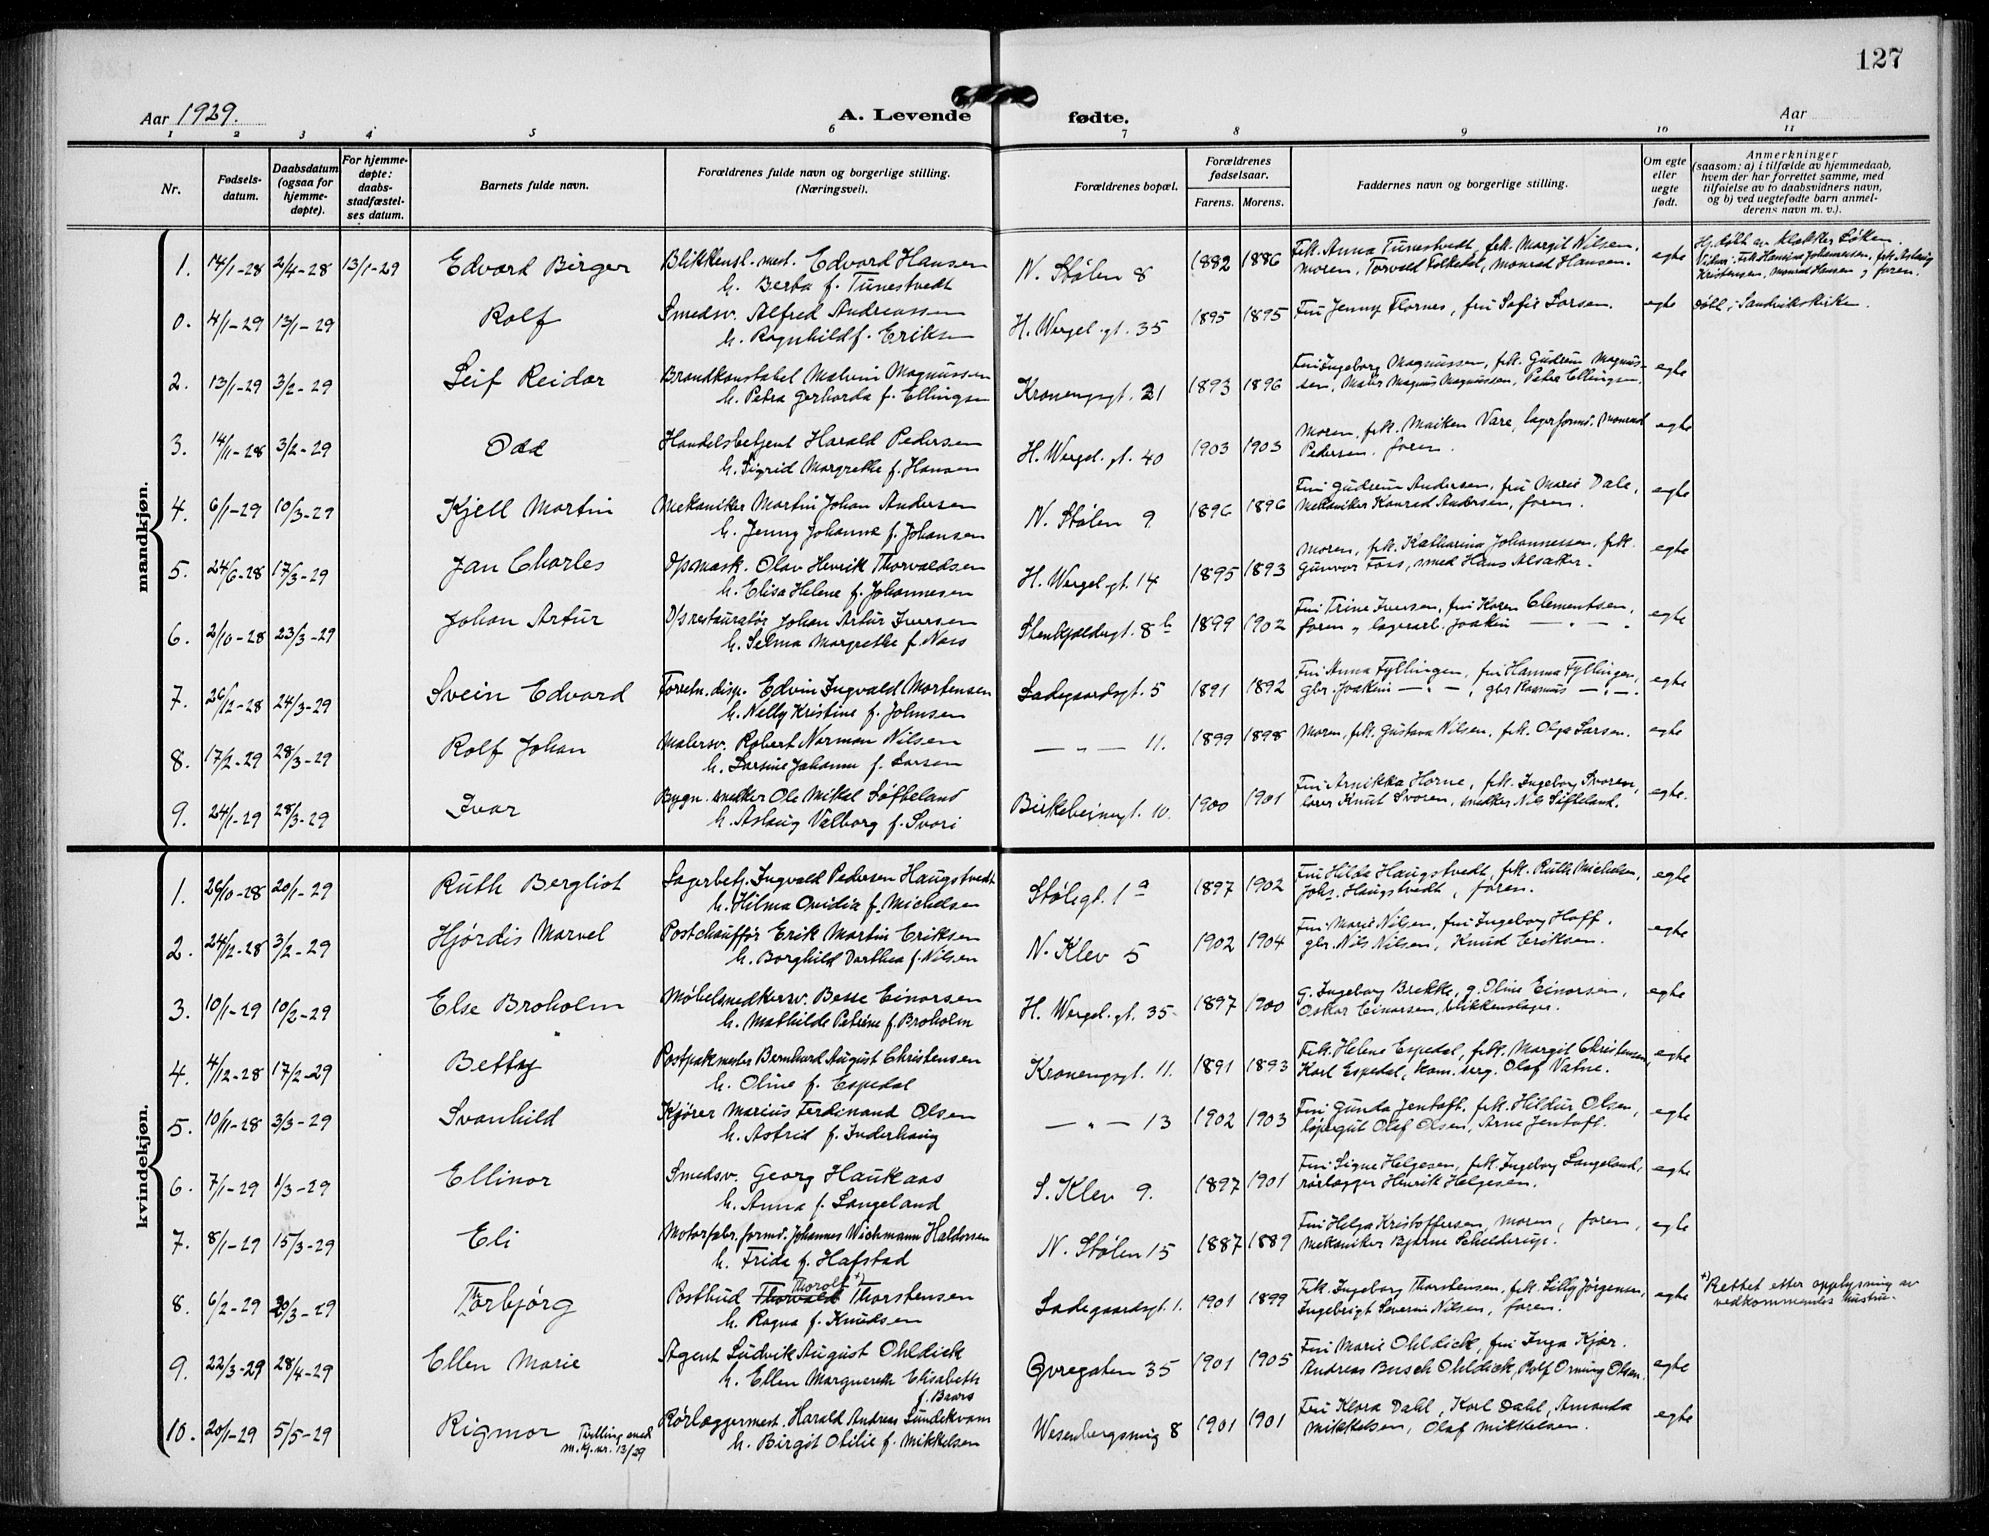 127
Aar 1929.
A. Levende fødte.
Aar
1 2 3 4 5 6 7 8 9 10 11
Nr.
Fødsels-
datum.
Daabsdatum
(ogsaa for
hjemme-
døpte).
For hjemme-
døpte:
daabs-
stadfæstel-
ses datum.
Barnets fulde navn.
Forældrenes fulde navn og borgerlige stilling.
(Næringsvei).
Forældrenes bopæl.
Forældrenes
fødselsaar.
Farens. Morens.
Faddernes navn og borgerlige stilling.
Om egte
eller
uegte
født.
Anmerkninger
(saasom: a) i tilfælde av hjemmedaab,
hvem der har forrettet samme, med
tilføielse av to daabsvidners navn,
og b) ved uegtefødte barn anmel-
derens navn m. v.).
mandkjøn.
1. 14/1-28 2/4-28 13/1-29 Edvard Birger Blikkensl. mest. Edvard Hansen N. Stølen 8 1882 1886 Frk. Anna Tunestvedt, frk. Margit Nilsen, egte
h. Berta f. Tunestvedt moren, Torvald Folkedal, Monrad Hansen.
Kristensen, Monrad Hansen, faren.
0. 4/1-29 13/1-29 Rolf Smedsv. Alfred Andreassen H. Wergel. gt. 35 1895 1895 Fru Jenny Flornes, fru Sofie Larsen. egte døbt i Sandvikskirken.
h. Ragnhild f. Eriksen
2. 13/1-29 3/2-29 Leif Reidar Brandkonstabel Malvin Magnussen Kronengsgt. 21 1893 1896 Fru Ingeborg Magnussen, frk. Gudrun Magnus- egte
h. Petra Gerharda f. Ellingsen sen, Maler Magnus Magnussen, Petra Ellingsen.
3. 14/11-28 3/2-29 Odd Handelsbetjent Harald Pedersen H. Wergel. gt. 40 1903 1903 Moren, frk. Maiken Vare, lagerform. Monrad egte
h. Sigrid Margrethe f. Hansen Pedersen, faren.
4. 6/1-29 10/3-29 Kjell Martin Mekaniker Martin Johan Andersen N. Stølen 9 1896 1896 Fru Gudrun Andersen, fru Marie Dale, egte
h. Jenny Johanna f. Johansen Mekaniker Konrad Andersen, faren.
5. 24/6-28 17/3-29 Jan Charles D/pmask. Olav Henrik Thorvaldsen H. Wergel. gt. 14 1895 1893 Moren, frk. Katharina Johannessen, frk. egte
h. Elisa Helene f. Johannesen Gunvor Foss, smed Hans Alsaker.
6. 2/10-28 23/3-29 Johan Artur D/s restauratør Johan Artur Iversen Stenkjeldersgt. 8b 1899 1902 Fru Trine Iversen, fru Karen Clementsen, egte
h. Selma Margrethe f. Næss faren, lagerarb. Joakim — " — .
7. 26/12-28 24/3-29 Svein Edvard Forretn. disp. Edvin Ingvald Mortensen Ladegaardsgt. 5 1891 1892 Fru Anna Fyllingen, fru Hanna Fyllingen, egte
h. Nelly Kristine f. Johnsen gbr. Joakim — " —, gbr. Rasmus — " —.
8. 17/2-29 28/3-29 Rolf Johan Malersv. Robert Norman Nilsen — " — 11. 1899 1898 Moren, frk. Gustava Nilsen, frk. Olga Larsen. egte
h. Larsine Johanne f. Larsen
9. 24/1-29 28/3-29 Ivar Bygn. snekker Ole Mikal Søfteland Birkebeinergt. 10 1900 1901 Fru Annikka Horne, frk. Ingeborg Svoren, egte.
h. Aslaug Valborg f. Svori lærer Knut Svoren, snekker Nils Søfteland.
kvindekjøn.
1. 26/10-28 20/1-29 Ruth Bergliot Lagerbetj. Ingvald Pedersen Haugstvedt Stølegt. 1a 1897 1902 Fru Hilda Haugstvedt, frk. Ruth Michelsen, egte
h. Hilma Ovidia f. Michelsen Johs. Haugstvedt, faren.
2. 24/12-28 3/2-29 Hjørdis Marvel Postchauffør Erik Martin Eriksen N. Klev 5 1902 1904 Fru Marie Nilsen, fru Ingeborg Hoff. egte
h. Borghild Dorthea f. Nilsen gbr. Nils Nilsen, Knud Eriksen.
3. 10/1-29 10/2-29 Else Broholm Møbelsnedkersv. Besse Einarsen H. Wergel. gt. 35 1897 1900 G. Ingeborg Brekke, g. Oline Einarsen, egte
h. Mathilde Petrine f. Broholm Oskar Einarsen, blikkenslager.
4. 4/12-28 17/2-29 Betty Postpakmester Bernhard August Christensen Kronengsgt. 11. 1891 1893 Frk. Helene Espedal, frk. Margit Christensen, egte
h. Oline f. Espedal Karl Espedal, kom. serg. Olaf Vatne.
5. 10/11-28 3/3-29 Svanhild Kjører Marius Ferdinand Olsen — " — 13 1902 1903 Fru Gunda Jentoft, frk. Hildur Olsen, egte
h. Astrid f. Inderhaug løpegut Olaf Olsen, Arne Jentoft.
6. 7/1-29 1/3-29 Ellinor Smedsv. Georg Haukaas S. Klev 9. 1897 1901 Fru Signe Helgesen, frk. Ingeborg Langeland, egte
h. Anna f. Langeland rørlægger Henrik Helgesen.
7. 8/1-29 15/3-29 Eli Motorfabr. formd. Johannes Wichmann Haldorsen N. Stølen 15 1887 1889 Fru Helga Kristoffersen, moren, faren, egte
h. Frida f. Hafstad Mekaniker Bjarne Schelderup.
8. 6/2-29 20/3-29 Torbjørg Postbud Thorvald Thorolf +) Thorstensen Ladegaardsgt. 1. 1901 1899 Frk. Ingeborg Thorstensen, frk. Lilly Jørgensen, egte +) Rettet etter opplysning av
h. Ragna f. Knudsen Ingebrigt Severin Nilsen, faren. vedkommendes hustru.
9. 22/3-29 28/4-29 Ellen Marie Agent Ludvik August Ohldieck Øvregaten 35 1901 1905 Fru Marie Ohldieck, fru Inga Kjær. egte
h. Ellen Marguereth Elisabeth Andreas Busch Ohldieck, Rolf Orning Olsen.
f. Brørs
10. 20/1-29 5/5-29 Rigmor Tvilling med Rørlæggermest. Harald Andreas Sundekvam Wesenbergsmug 8 1901 1901 Fru Klara Dahl, Karl Dahl, Amanda egte
m.kj. nr. 13/29 h. Birgit Otilie f. Mikkelsen Mikkelsen, Olaf Mikkelsen.